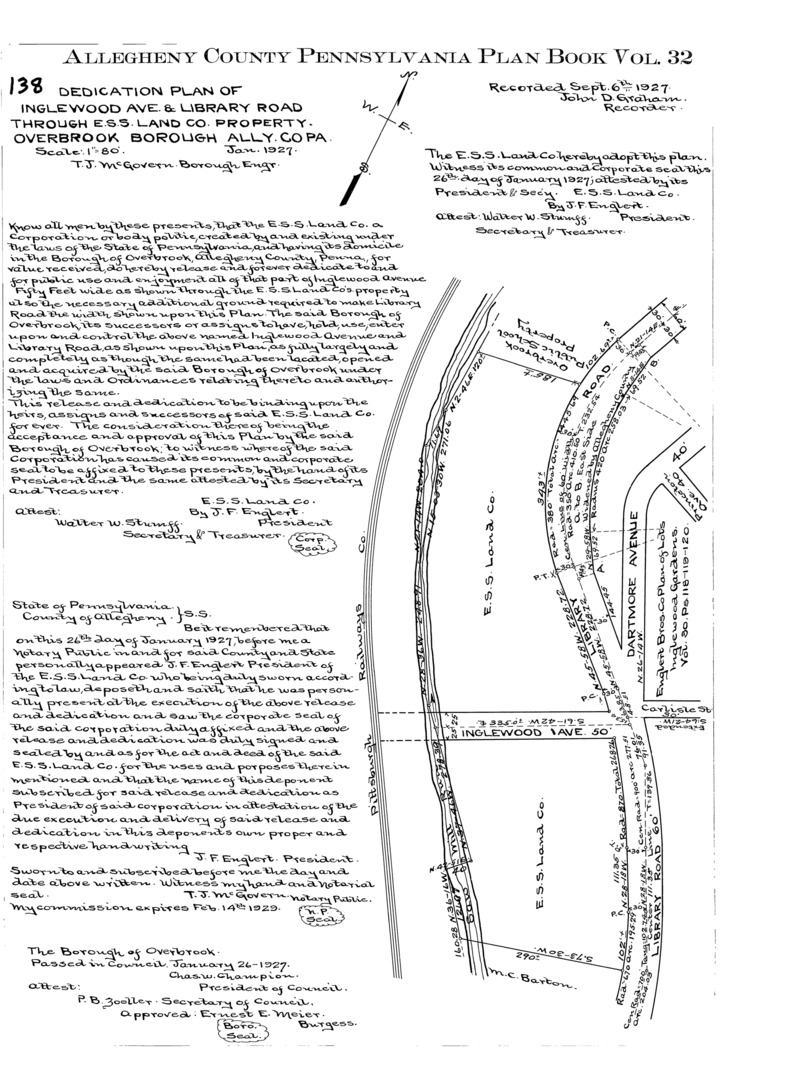 ALLEGHENY COUNTY PENNSYLVANIA PLAN BOOK VOL. 32
138 DEDICATION PLAN OF
INGLEWOOD AVE. & LIBRARY ROAD
THROUGH E.S.S. LAND CO. PROPERTY.
OVERBROOK BOROUGH ALLY. CO. PA.
Scale: 1"=80'. Jan. 1927.
T.J. McGovern. Borough Engr.
N.
W.
E.
S
Recorded Sept. 6th 1927.
John D. Graham.
Recorder.
The E.S.S. Land Co. hereby adopt this plan.
Witness its common and corporate seal this
26th day of January 1927; attested by its
President & Secy. E.S.S. Land Co.
By J.F. Englert.
Attest: Walter W. Stumff. President.
Secretary & Treasurer.
Know all men by these presents, that the E.S.S. Land Co. a
Corporation or body politic, created by and existing under
the laws of the State of Pennsylvania, and having its domicile
in the Borough of Overbrook, Allegheny County, Penna., for
value received, do hereby release and forever dedicate to and
for public use and enjoyment all of that part of Inglewood Avenue
Fifty Feet wide as shown through the E.S.S. Land Co's property
also the necessary additional ground required to make Library
Road the width shown upon this Plan. The said Borough of
Overbrook, its successors or assigns to have, hold, use, enter
upon and control the above named Inglewood Avenue and
Library Road, as shown upon this Plan, as fully, largely and
completely as though the same had been located, opened
and acquired by the said Borough of Overbrook under
the laws and Ordinances relating thereto and author-
izing the same.
This release and dedication to be binding upon the
heirs, assigns and successors of said E.S.S. Land Co.
for ever. The consideration thereof being the
acceptance and approval of this Plan by the said
Borough of Overbrook; to witness whereof the said
Corporation has caused its common and corporate
seal to be affixed to these presents, by the hand of its
President and the same attested by its Secretary
and Treasurer.
E.S.S. Land Co.
Attest: By J.F. Englert.
Walter W. Stumff. President
Secretary & Treasurer.
Corp.
Seal.
State of Pennsylvania }
County of Allegheny } S.S.
Be it remembered that
on this 26th day of January 1927, before me a
Notary Public in and for said County and State
personally appeared J.F. Englert President of
the E.S.S. Land Co who being duly sworn accord-
ing to law, deposeth and saith that he was person-
ally present at the execution of the above release
and dedication and saw the corporate seal of
the said corporation duly affixed and the above
release and dedication was duly signed and
sealed by and as for the act and deed of the said
E.S.S. Land Co. for the uses and porposes therein
mentioned and that the name of this deponent
subscribed for said release and dedication as
President of said corporation in attestation of the
due execution and delivery of said release and
dedication in this deponents own proper and
respective handwriting
J.F. Englert. President.
Sworn to and subscribed before me the day and
date above written. Witness my hand and Notarial
seal. T.J. McGovern. Notary Public.
My commission expires Feb. 14th 1929.
N.P.
Seal
The Borough of Overbrook.
Passed in Council, January 26-1927.
Chas. W. Champion.
Attest: President of Council.
P.B. Zoeller. Secretary of Council.
Approved: Ernest E. Meier.
Boro. Burgess.
Seal.
Overbrook
Public School
Property
187.5'
N-2-46E. 120'
E.S.S. Land Co.
343'±
LIBRARY ROAD
P.T.
A
B
40'
Princeton
Ave. 40'
DARTMORE AVENUE
N-26-14W.
Englert Bros. Co Plan of Lots
Inglewood Gardens.
Vol. 30. Pgs 118-119-120.
P.C.
Pittsburgh Railways Co.
S-61-42W. 385.07
25' 25'
INGLEWOOD AVE. 50'
Carlisle St
50'
Extended
S-64-21W
E.S.S. Land Co.
Saw Mill Run
P.C.
LIBRARY ROAD 60'
S-73-30W.
290'
M.C. Barton.